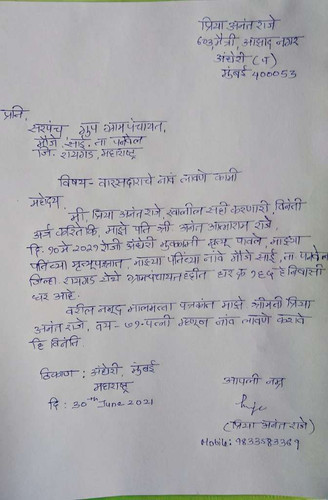 प्रिया अनंत राजे
६०३, मैत्री, आझाद नगर
अंधेरी (प)
मुंबई 400053
प्रति,
सरपंच ग्रुप ग्रामपंचायत,
मौजे साई, ता पनवेल
जि. रायगड, महाराष्ट्र
विषय - वारसदाराचे नांव लावणे कामी
महोदय,
मी, प्रिया अनंत राजे, खालील सही करणारी, विनंती
अर्ज करिते कि, माझे पति श्री अनंत आत्माराम राजे,
दि. १० मे २०२१ रोजी अंधेरी मुक्कामी मृत्यू पावले, माझ्या
पतिच्या मृत्यूपश्चात, माझ्या पतिच्या नांवे मौजे साई, ता. पनवेल
जिल्हा रायगड येथे ग्रामपंचायत हद्दीत घर क्र १६५ हे निवासी
घर आहे.
वरील नमूद मालमत्ता पत्रकांत माझे श्रीमती प्रिया
अनंत राजे, वय - ७१ - पत्नी म्हणून नांव लावणे करावे
हि विनंति
ठिकाण : अंधेरी, मुंबई
महाराष्ट्र
दि : 30th June 2021
आपली नम्र
(प्रिया अनंत राजे)
Mobile: 9833583369